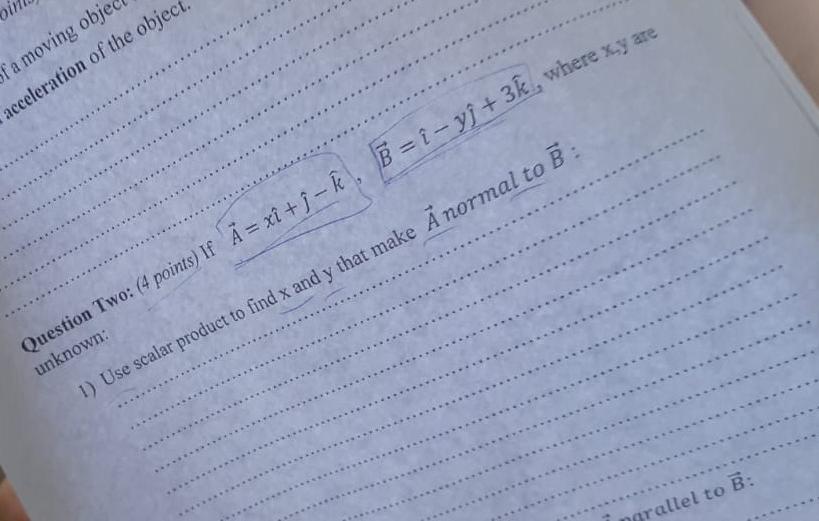 of a moving object
acceleration of the object.
Question Two: (4 points) If A⃗ = xî + ĵ − k̂ , B⃗ = î − yĵ + 3k̂ , where x,y are
unknown:
1) Use scalar product to find x and y that make A⃗ normal to B⃗ :
parallel to B⃗: